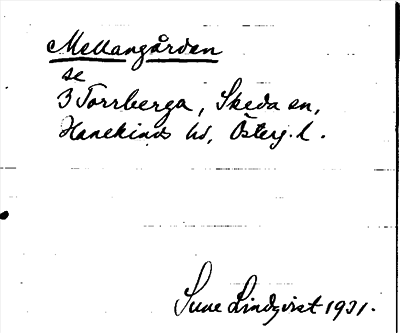 Mellangården
se
3 Torrberga, Skeda sn,
Hanekinds hd, Österg. l.
Sune Lindqvist 1931.